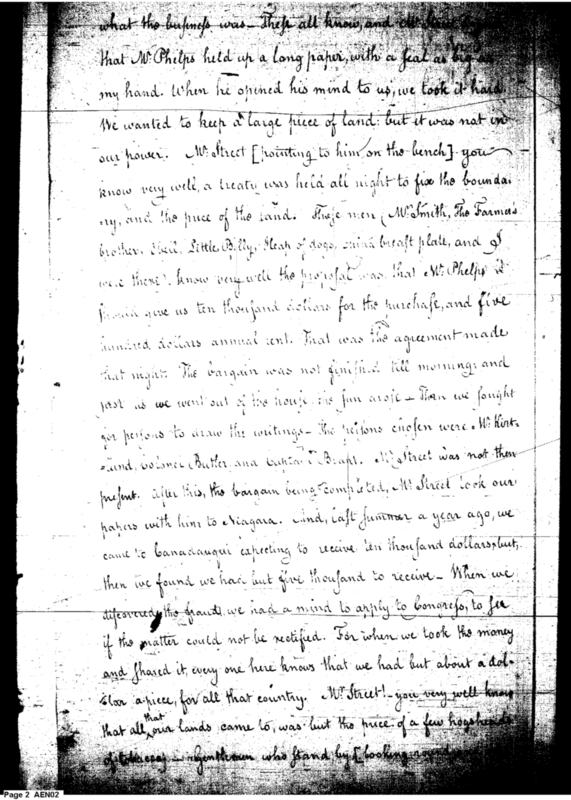 what the business was — These all know, and Mr Street
that Mr Phelps held up a long paper, with a seal as big as
my hand. When he opened his mind to us, we took it hard.
We wanted to keep a large piece of land: but it was not in
our power. Mr Street [pointing to him, on the bench] you
know very well, a treaty was held all night to fix the bounda-
ry, and the price of the land. These men (Mr Smith, The Farmer's
brother, Little Billy, Heap of dogs, breast plate, and I
were there) know very well the proposal was that Mr Phelps
should give us ten thousand dollars for the purchase, and five
hundred dollars annual rent. That was the agreement made
that night. The bargain was not finished till morning: and
just as we went out of the house the sun arose — Then we sought
for persons to draw the writings — the persons chosen were Mr Kirt-
land, Colonel Butler, and Captn Brant. Mr Street was not then
present. After this, the bargain being completed, Mr Street took our
papers with him to Niagara. And, last summer a year ago, we
came to Canadauqui expecting to receive ten thousand dollars, but,
then we found we had but five thousand to receive — When we
discovered the fraud, we had a mind to apply to Congress, to see
if the matter could not be rectified. For when we took the money
and shared it, every one here knows that we had but about a dol-
lar a piece, for all that country. Mr Street! — you very well know
that all that our lands came to, was but the price of a few hogsheads
of tobacco; — Gentlemen who stand by [looking round
Page 2 AEN02